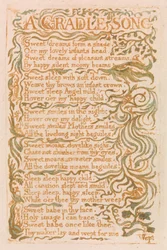 A CRADLE SONG
Sweet dreams form a shade
O'er my lovely infants head
Sweet dreams of pleasant streams
By happy silent moony beams
Sweet sleep with soft down
Weave thy brows an infant crown
Sweet sleep Angel mild
Hover o'er my happy child
Sweet smiles in the night
Hover over my delight
Sweet smiles Mothers smiles
All the livelong night beguiles
Sweet moans, dovelike sighs
Chase not slumber from thy eyes
Sweet moans, sweeter smiles
All the dovelike moans beguiles
Sleep sleep happy child
All creation slept and smil'd
Sleep sleep, happy sleep
While o'er thee thy mother weep
Sweet babe in thy face
Holy image I can trace
Sweet babe once like thee
Thy maker lay and wept for me